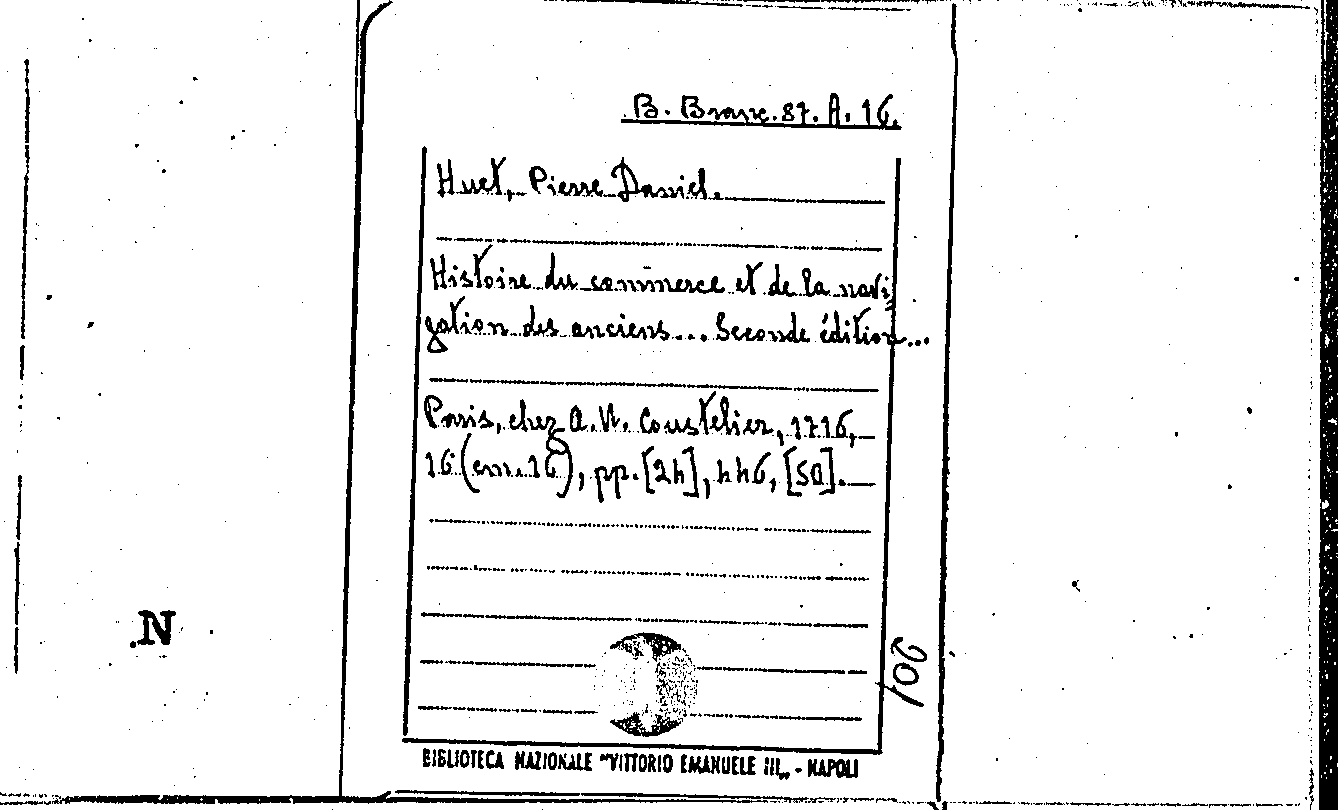 B. Branc. 87. A. 16.
Huet, Pierre Daniel.
Histoire du commerce et de la navi
gation des anciens... Seconde édition...
Paris, chez A. U. Coustelier, 1716,
16 (cm. 16), pp. [24], 446, [50].
N
901
BIBLIOTECA NAZIONALE "VITTORIO EMANUELE III„ - NAPOLI